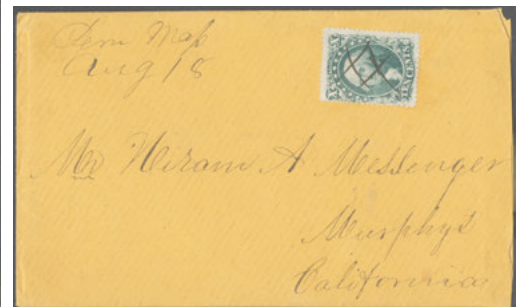 Peru Mass
Aug 18
Mr Hiram A Messenger
Murphys
California